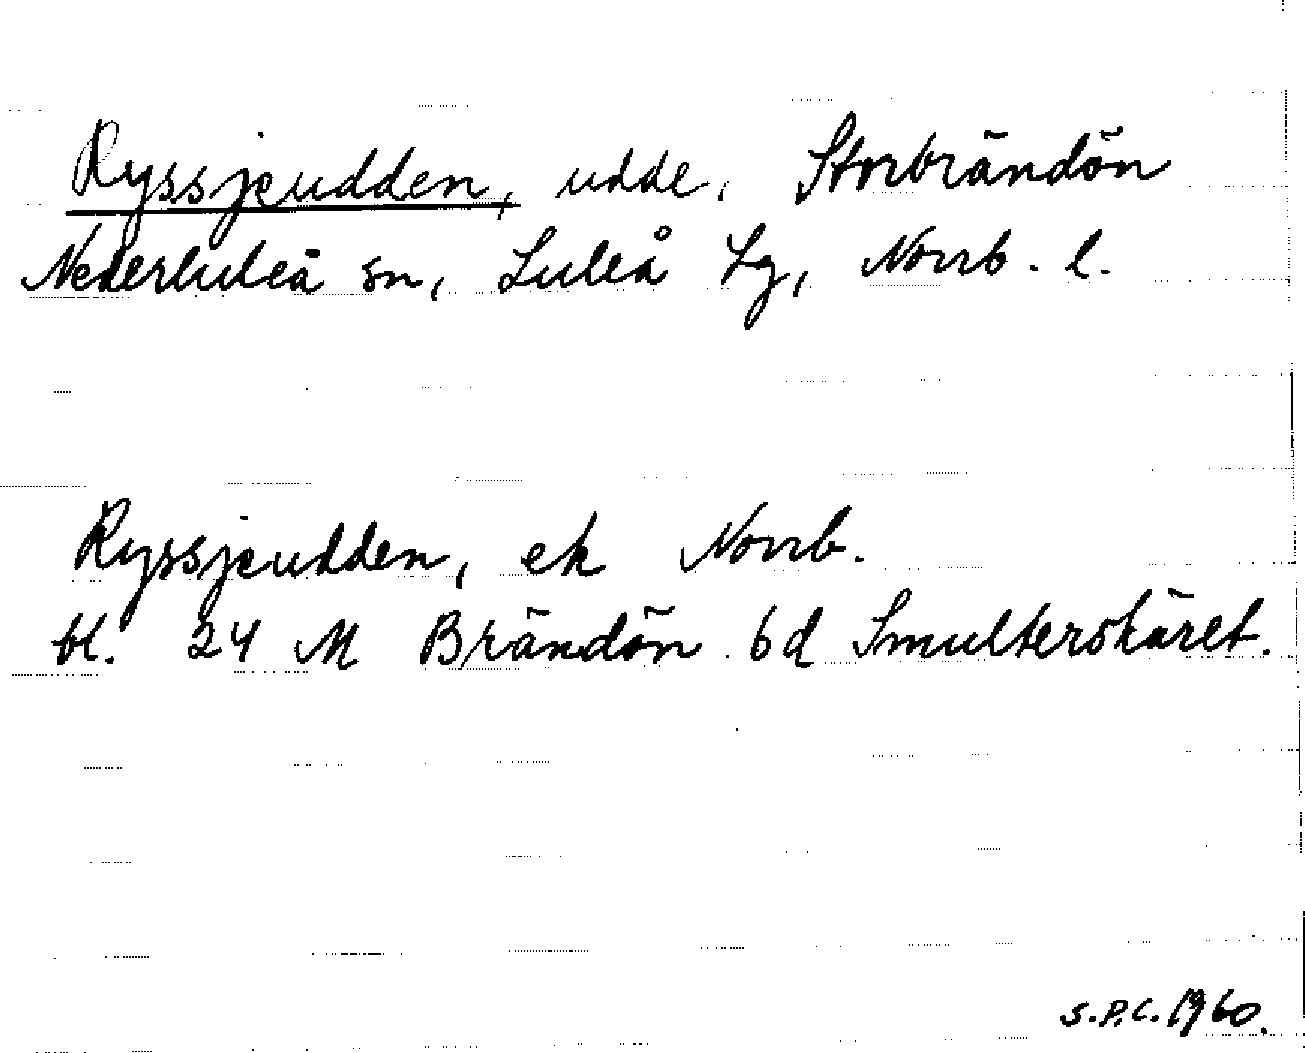 Ryssjeudden, udde, Storbrändön
Nederluleå sn, Luleå Lg, Norrb. l.
Ryssjeudden, ek Norrb.
bl. 24 M Brändön 6d Smulterskäret.
S.P.C. 1960.